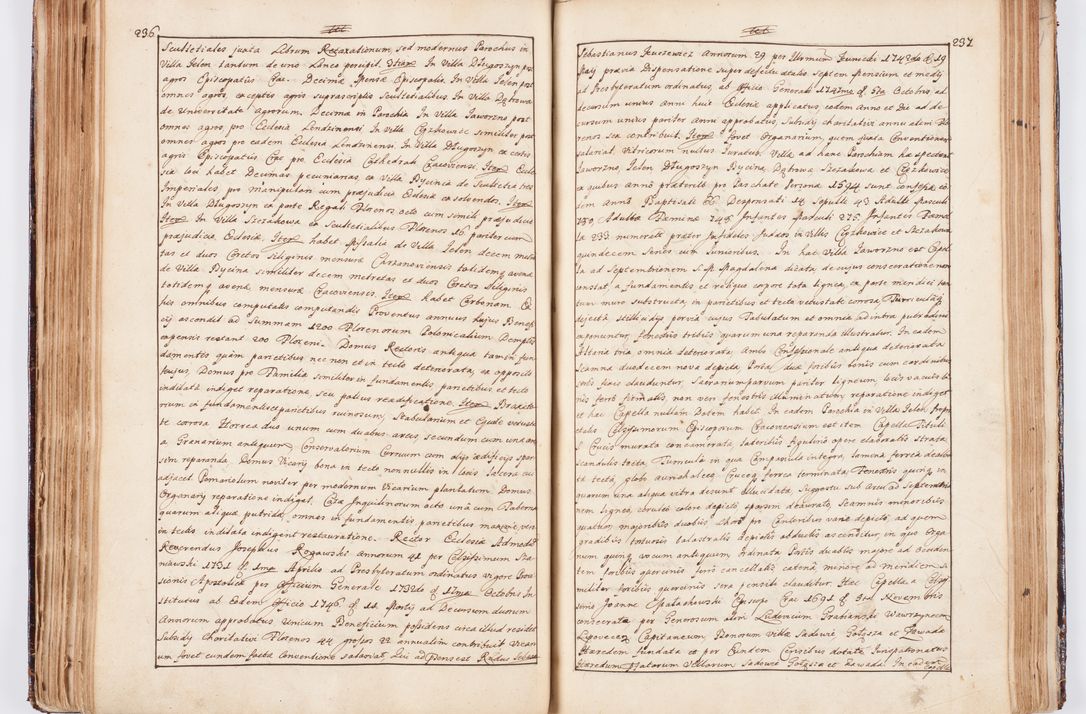 236
Scultetiales juxta Librum Retaxationum, sed modernus Parochus in
Villa Jelen tandum de uno Laneo percipit. Item In Villa Długoszyn post
agros Episcopatus Crac. Decimæ Mensæ Episcopalis. In Villa Jelen post
omnes agros, exceptis agris suprascriptis Scultetialibus. In Villa Dątrowa
de Universitate Agrorum. Decima in Parochia In Villa Jaworzno post
omnes agros pro Ecclesia Lendzinensi. In Villa Ciężkowice similiter post
omnes agros pro eadem Ecclesia Lendzinensi. In Villa Długoszyn ex certis
agris Episcopatus Crac pro Ecclesia Cathedrali Cracoviensi. Item Eccle
sia hæc habet Decimas pecuniarias ex Villa Byczinia de Scultetia tres
Imperiales pro manipulari cum præjudicio Ecclesiæ exsolvendos. Item
Item In Villa Długoszyn ex parte Regali Florenos octo cum simili præjudicio
Item In Villa Szczakowa ex Scultetialibus Florenos 16 pariter cum
præjudicio Ecclesiæ, Item habet Missalia de Villa Jelen decem metre
tas et duos Coretos Siliginis mensuræ Chrzanoviensis totidemq avenæ
de Villa Byczina similiter decem metretas et duos Coretos Siliginis
totidemq avenæ mensuræ Cracoviensis. Item habet Carbonam. Ex
his omnibus computatis computandis Proventus annuus hujus Benefi
cij ascendit ad Summam 1200 Florenorum Polonicalium Demptis
expensis restant 200 Floreni. Domus Rectoris antiqua tam in fun
damentis quàm parietibus nec non et in tecto deteriorata, ex opposito
hujus, Domus pro Familia similiter in fundamentis parietibus et tecto
inditata indiget reparatione seu potius readificatione. Item Braxato
rium in fundamentisqe parietibus ruinosum, Stabularium et Equile vetusta
te corrosa Horrea duo unum cum duabus areis, secundum cum una an
a Granarium antiquum Conservatorium Curruum cum alijs ædificijs spar
sim reparanda. Domus Vicarij bona in tecto nonnullis in locis lacera cui
adjacet Pomariolum noviter per modernum Vicarium plantatum. Domus
Organarij reparatione indiget. Casæ Inquilinorum octo unà cum Taberna
quarum aliqua putrida, omnes in fundamentis parietibus
in tectis inditata indigent restauratione. Rector Ecclesiæ Admodū
Reverendus Josephus Rogawski annorum 41 per Celsissimum Sza
niawski 1731 d 1ma Aprilis ad Presbyteratum ordinatus vigore Provi
sionis Apostolicæ per Officium Generale 1732do d 11ma Octobris In
stitutus ab Eodem Officio 1746 d 11 Martij ad Decursum duorum
Annorum approbatus Unicum Beneficium possidens circa illud residet
Subsidij Charitativi Florenos 44 grossos 22 annualim contribuit Vicari
um fovet eundem juxta Conventione salariat, Qui ad Pensest Rndus Sebas
237
Sebastianus Jeuszewicz Annorum 29 per Illrmum Kunicki 1742do d 19
Maij prævia Dispensatione super defectu ætatis septem Mensium et medij
ad Presbyteratum ordinatus, ab Officio Generali 1747mo d 5ta Octobris ad
decursum unius anni huic Ecclesiæ applicatus, eodem anno et Die ad de
cursum unius pariter anni approbatus, Subsidij charitativi annualim Flo
renos sex contribuit, Item fovet Organarium, quem juxta Conventionem
salariat. Vitricorum nullus Juratus. Villæ ad hanc Parochiam hæ spectant
Jaworzno Jelen Długoszyn Byczina Dątrowa Szczakowa et Ciężkowice
ex quibus annô præterito pro Paschate Persona 1594 sunt confessæ eo
dem Annô Baptisati 86 Desponsati 18 Sepulti 43 Adulti Masculi
780, Adultæ Faminæ 748 Infantes Masculi 275 Infantes Fæmel
læ 233 numeratæ præter Infideles Judæos in Villis Ciężkowice et Szczakowa
quindecem Senes cum Junioribus. In hac Villa Jaworzno est Capel
la ad Septemtrionem S. M. Magdalenæ dicata, de cujus consecratione non
constat à fundamentis et reliquo corpore tota lignea, ex parte meridiei tan
tum muro substructa, in parietibus et tecto vetustate corrosa, Turricula
dejecta stillicidijs pervia cujus Tabulatum et omnia ad intra putredini
exponuntur, fenestris tribus quarum una reparanda illustratur. In eadem
Altaria tria omnia deteriorata, Ambo Confessionale antiqua deteriorata
Scamna duodecem nova depicta, Portæ duæ foribus bonis cum cardinibus
seris hæc clauduntur, Sacrarium parvum pariter ligneum,
nis ferò firmatis, non verò fenestris illuminatum, reparatione indiget
et hæc Capella nullam Dotem habet. In eadem Parochia in Villa Jelen Propri
etatis Celsissimorum Episcoporum Cracoviensium est item Capella Tituli
S Crucis murata concamerata, lateribus figulinô opere elaboratis strata
scandulis tecta, Turricula in qua Campanula integra, lamina ferrea dealba
ta tecta, globo aurichalceo, Cruceq ferrea terminata, Fenestris quinq in
quarum una aliqua vitra desunt elucidata, Suggestu sub Arcu ad Septemtrio
nem ligneô, cæruleo colore depictô sparsim deaurato, Scamnis minoribus
quatuor, majoribus duobus, Chorô pro Cantoribus variè depicto, ad quem
gradibus tortuosis balastralis depictis abductis ascenditur, in quo Orga
num quinq vocum antiquum ordinata Portis duabus majore ad Occiden
tem foribus quercinis, serô cancellatis catenâ, minore ad meridiem si
militer foribus quercinis serâ pensili clauditur, Hæc Capella à Celsis
simo Joanne Małachowski Episcopo Crac 1691 d 3ia Novembris
consecrata, per Generosum olim Ludovicum Grabianski Wawrzynacen
Lipovecen Capitaneum Bonorum Villæ Sadowie Gołysza et Zawada
Hæredem fundata et per Eundem Censibus dotata Juriopatronatus
Hæredum Fatorum Villarum Sadowie Gołysza et Zawada. In eadem
Capella